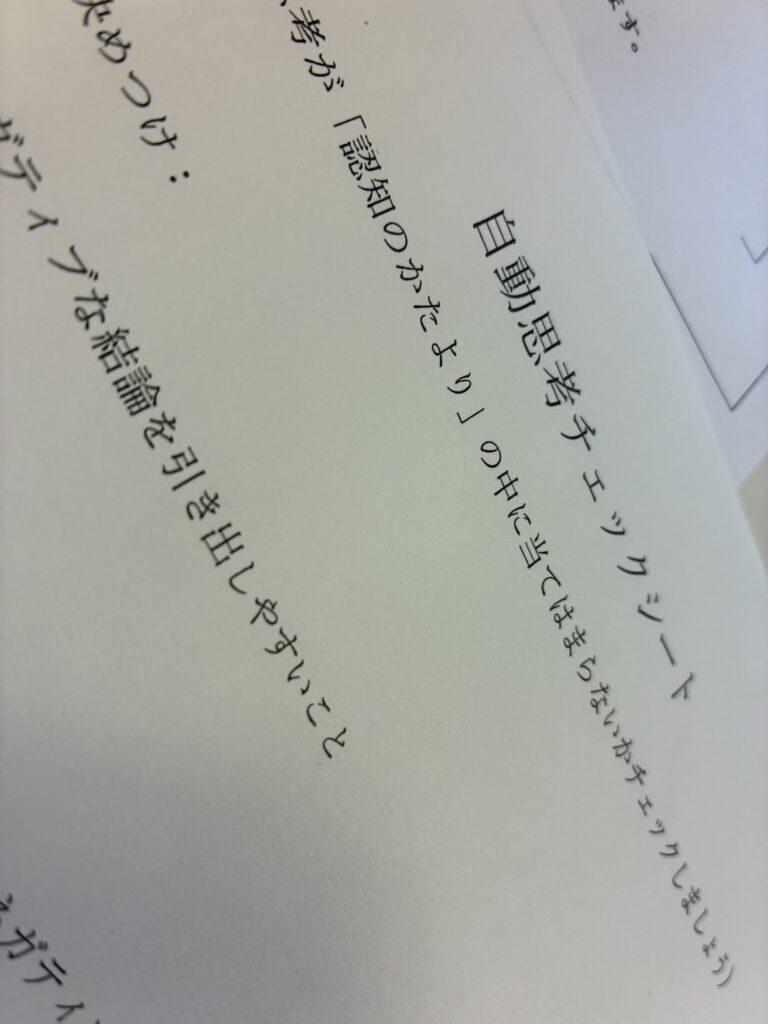 ます。
自動思考チェックシート
考が「認知のかたより」の中に当てはまらないかチェックしましょう)
決めつけ:
ガティブな結論を引き出しやすいこと
ネガティ